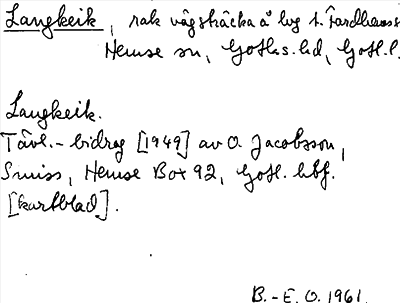 Langkeik, rak vägsträcka å lvg t. Fardhems
Hemse sn, Goth.s. hd, Gotl. l.
Langkeik.
Tävl.-bidrag [1949] av O. Jacobsson,
Smiss, Hemse Box 92, Gotl. hbf.
[kartblad].
B.-E. O. 1961.